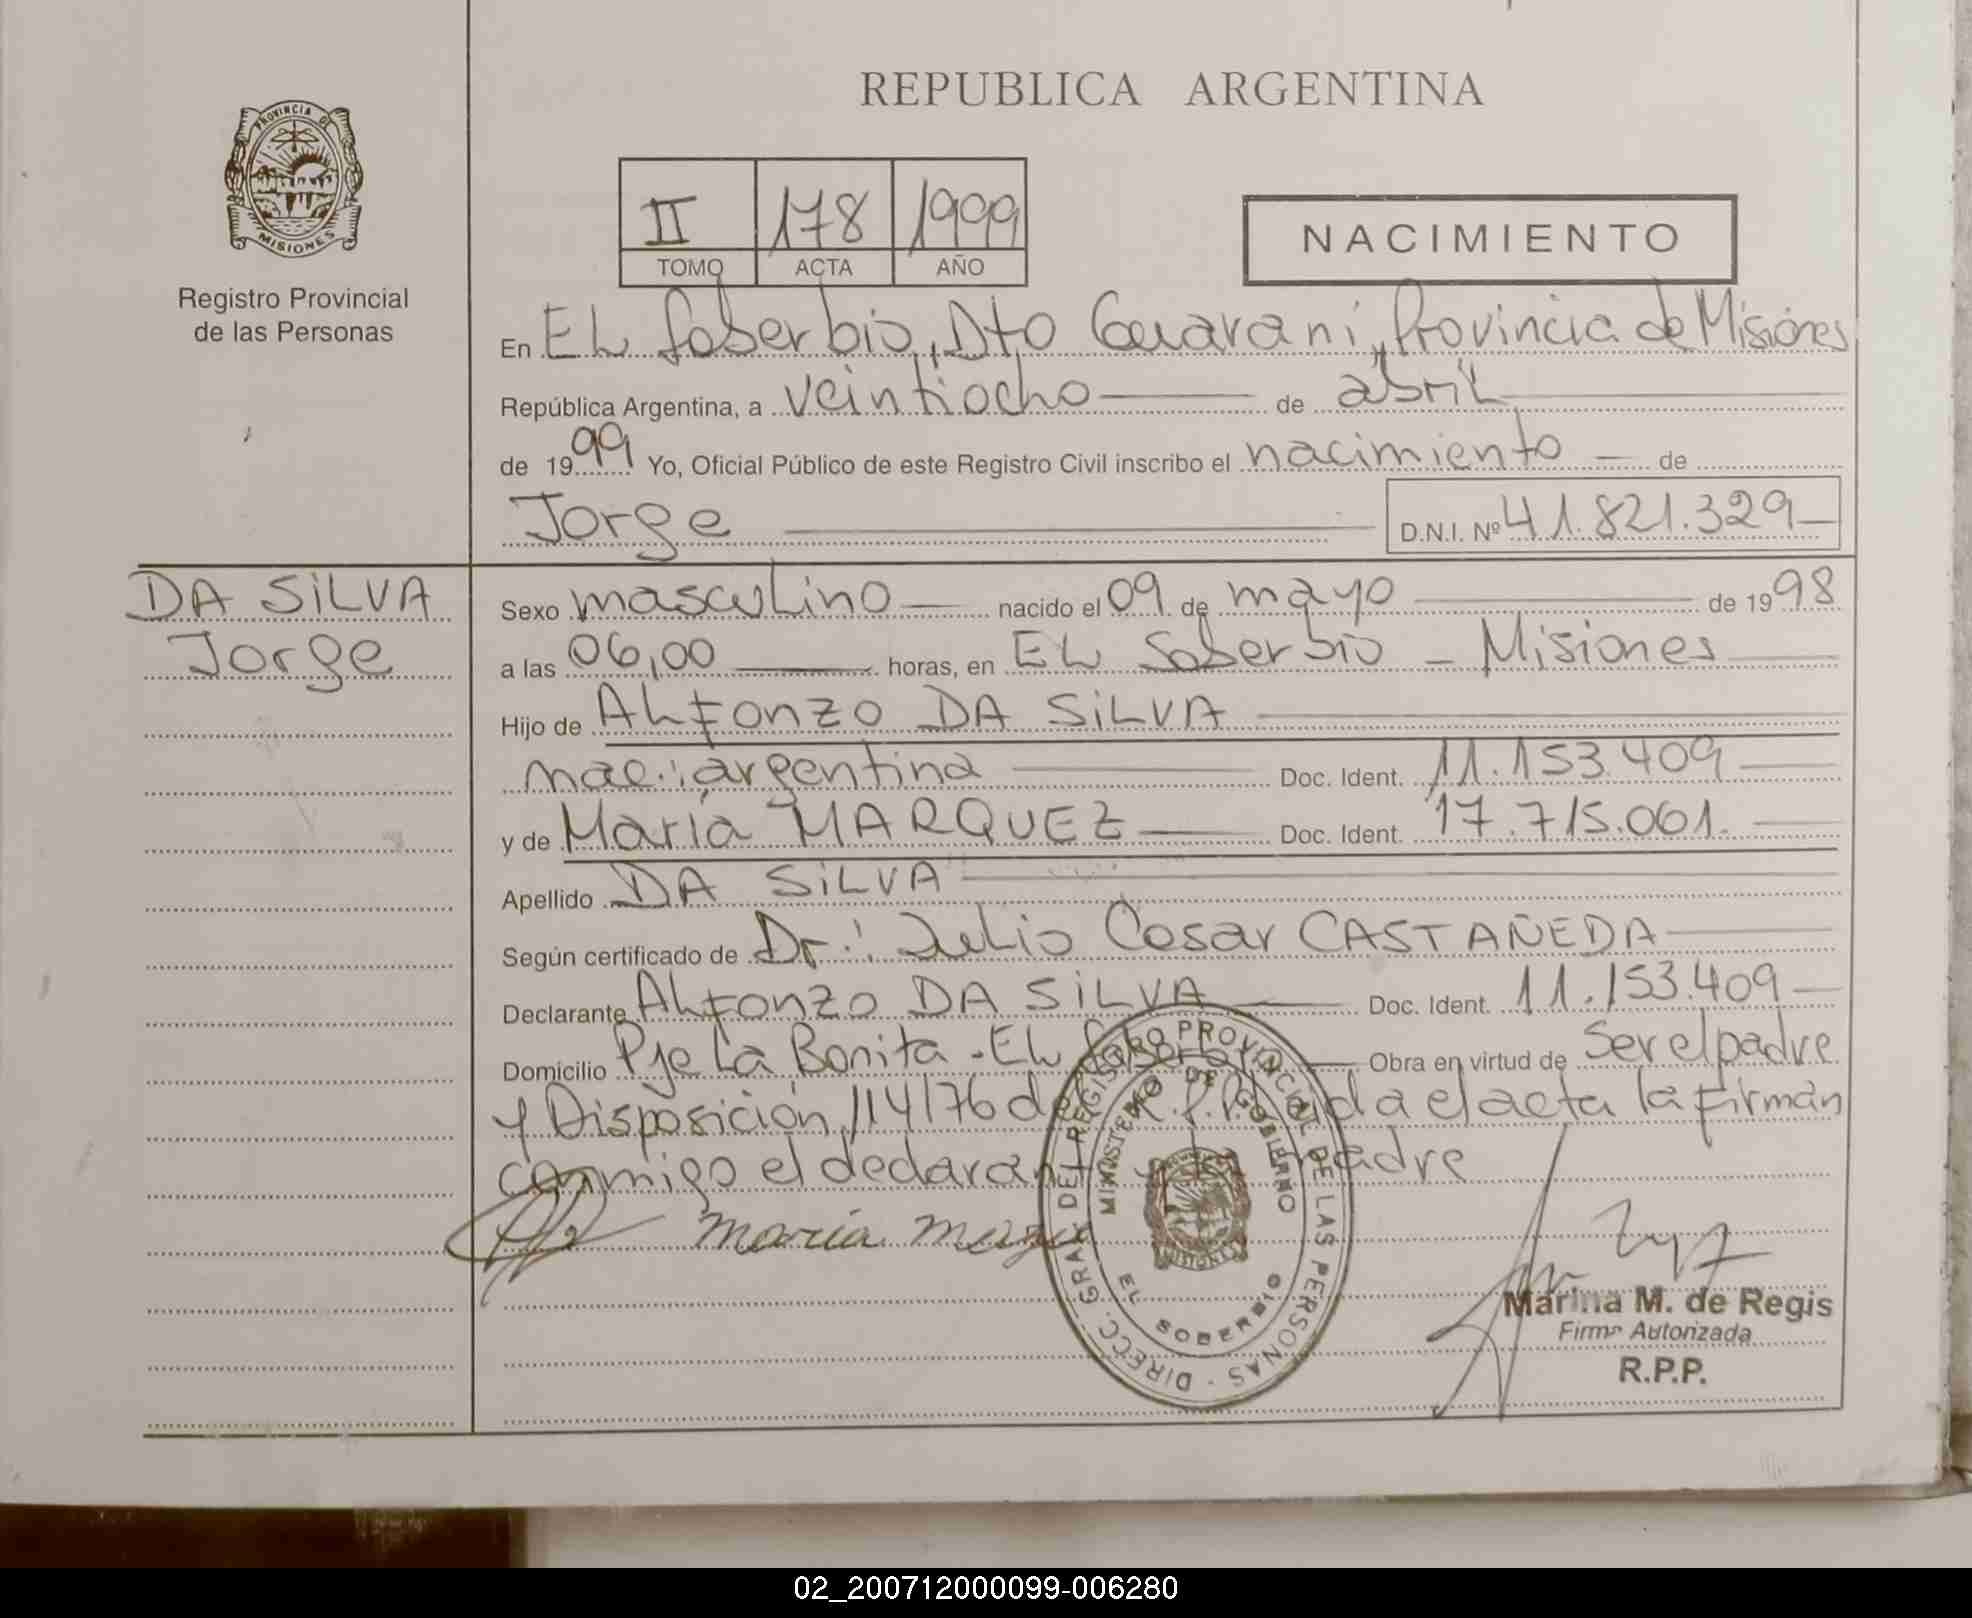 REPUBLICA ARGENTINA
PROVINCIA DE
MISIONES
Registro Provincial
de las Personas
II 178 1999
TOMO ACTA AÑO
NACIMIENTO
En EL Soberbio, Dto Guaraní, Provincia de Misiones
República Argentina, a veintiocho de abril
de 1999 Yo, Oficial Público de este Registro Civil inscribo el nacimiento de
Jorge D.N.I. Nº 41.821.329
DA SILVA
Jorge
Sexo masculino nacido el 09 de mayo de 1998
a las 06,00 horas, en EL Soberbio - Misiones
Hijo de ALFONZO DA SILVA
nac.: argentina Doc. Ident. 11.153.409
y de María MARQUEZ Doc. Ident. 17.715.061.
Apellido DA SILVA
Según certificado de Dr.: Julio Cesar CASTAÑEDA
Declarante ALFONZO DA SILVA Doc. Ident. 11.153.409
Domicilio Pje La Bonita - EL Soberbio Obra en virtud de ser el padre
y Disposición 114/76 del R.P.P. Leída el acta la firman
conmigo el declarante y la madre
maria
DIRECC. GRAL. DEL REGISTRO PROVINCIAL DE LAS PERSONAS -
MINISTERIO DE GOBIERNO
MISIONES
EL SOBERBIO
Marina M. de Regis
Firma Autorizada
R.P.P.
02_200712000099-006280